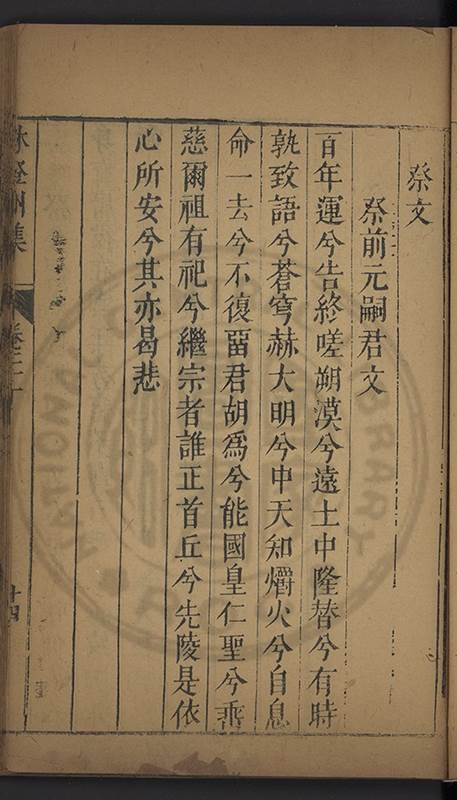 祭文
祭前元嗣君文
百年運兮告終嗟朔漠兮遠土中隆替兮有時
孰致語兮蒼穹赫大明兮中天知爝火兮自息
命一去兮不復畱君胡爲兮能國皇仁聖兮垂
慈爾祖有祀兮繼宗者誰正首丘兮先陵是依
心所安兮其亦曷悲
林登州集
卷二十
十四